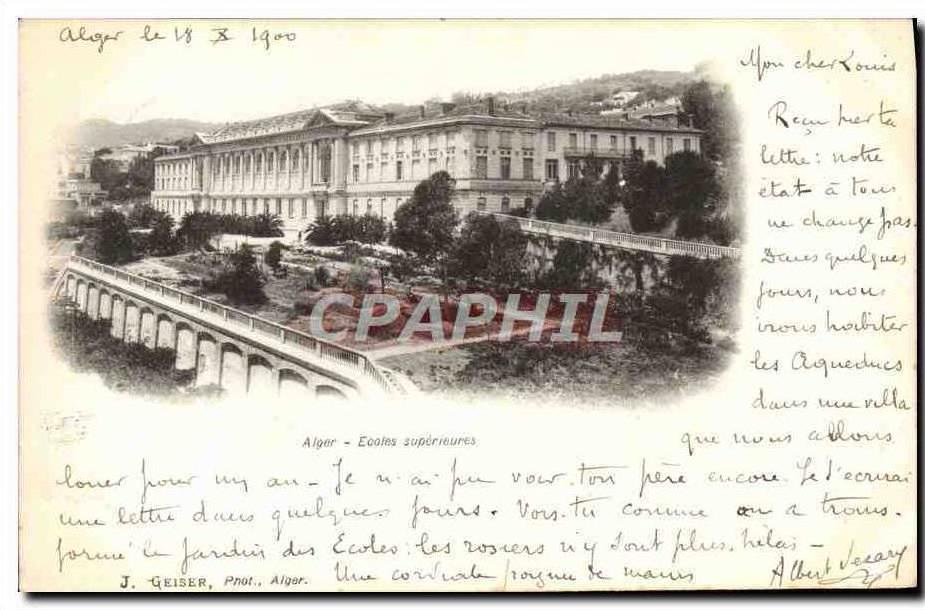 Alger le 18 X 1900
Mon cher Louis
Reçu hier ta
lettre : notre
état à tous
ne change pas.
Dans quelques
jours, nous
irons habiter
les Aqueducs
dans une villa
que nous allons
louer pour un an - Je n'ai pu voir ton père encore. Je t'écrirai
une lettre dans quelques jours. Vois-tu comme on a trans-
formé le jardin des Ecoles : les rosiers n'y sont plus, hélas -
Une cordiale poignée de mains
Albert
CPAPHIL
Alger - Ecoles supérieures
J. GEISER, Phot., Alger.